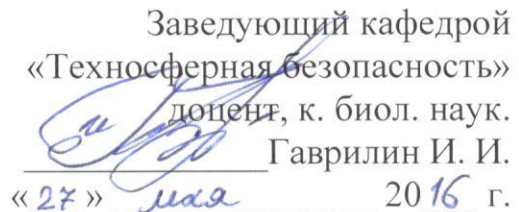 Заведующий кафедрой
«Техносферная безопасность»
доцент, к. биол. наук.
Гаврилин И. И.
« 27 » мая 2016 г.